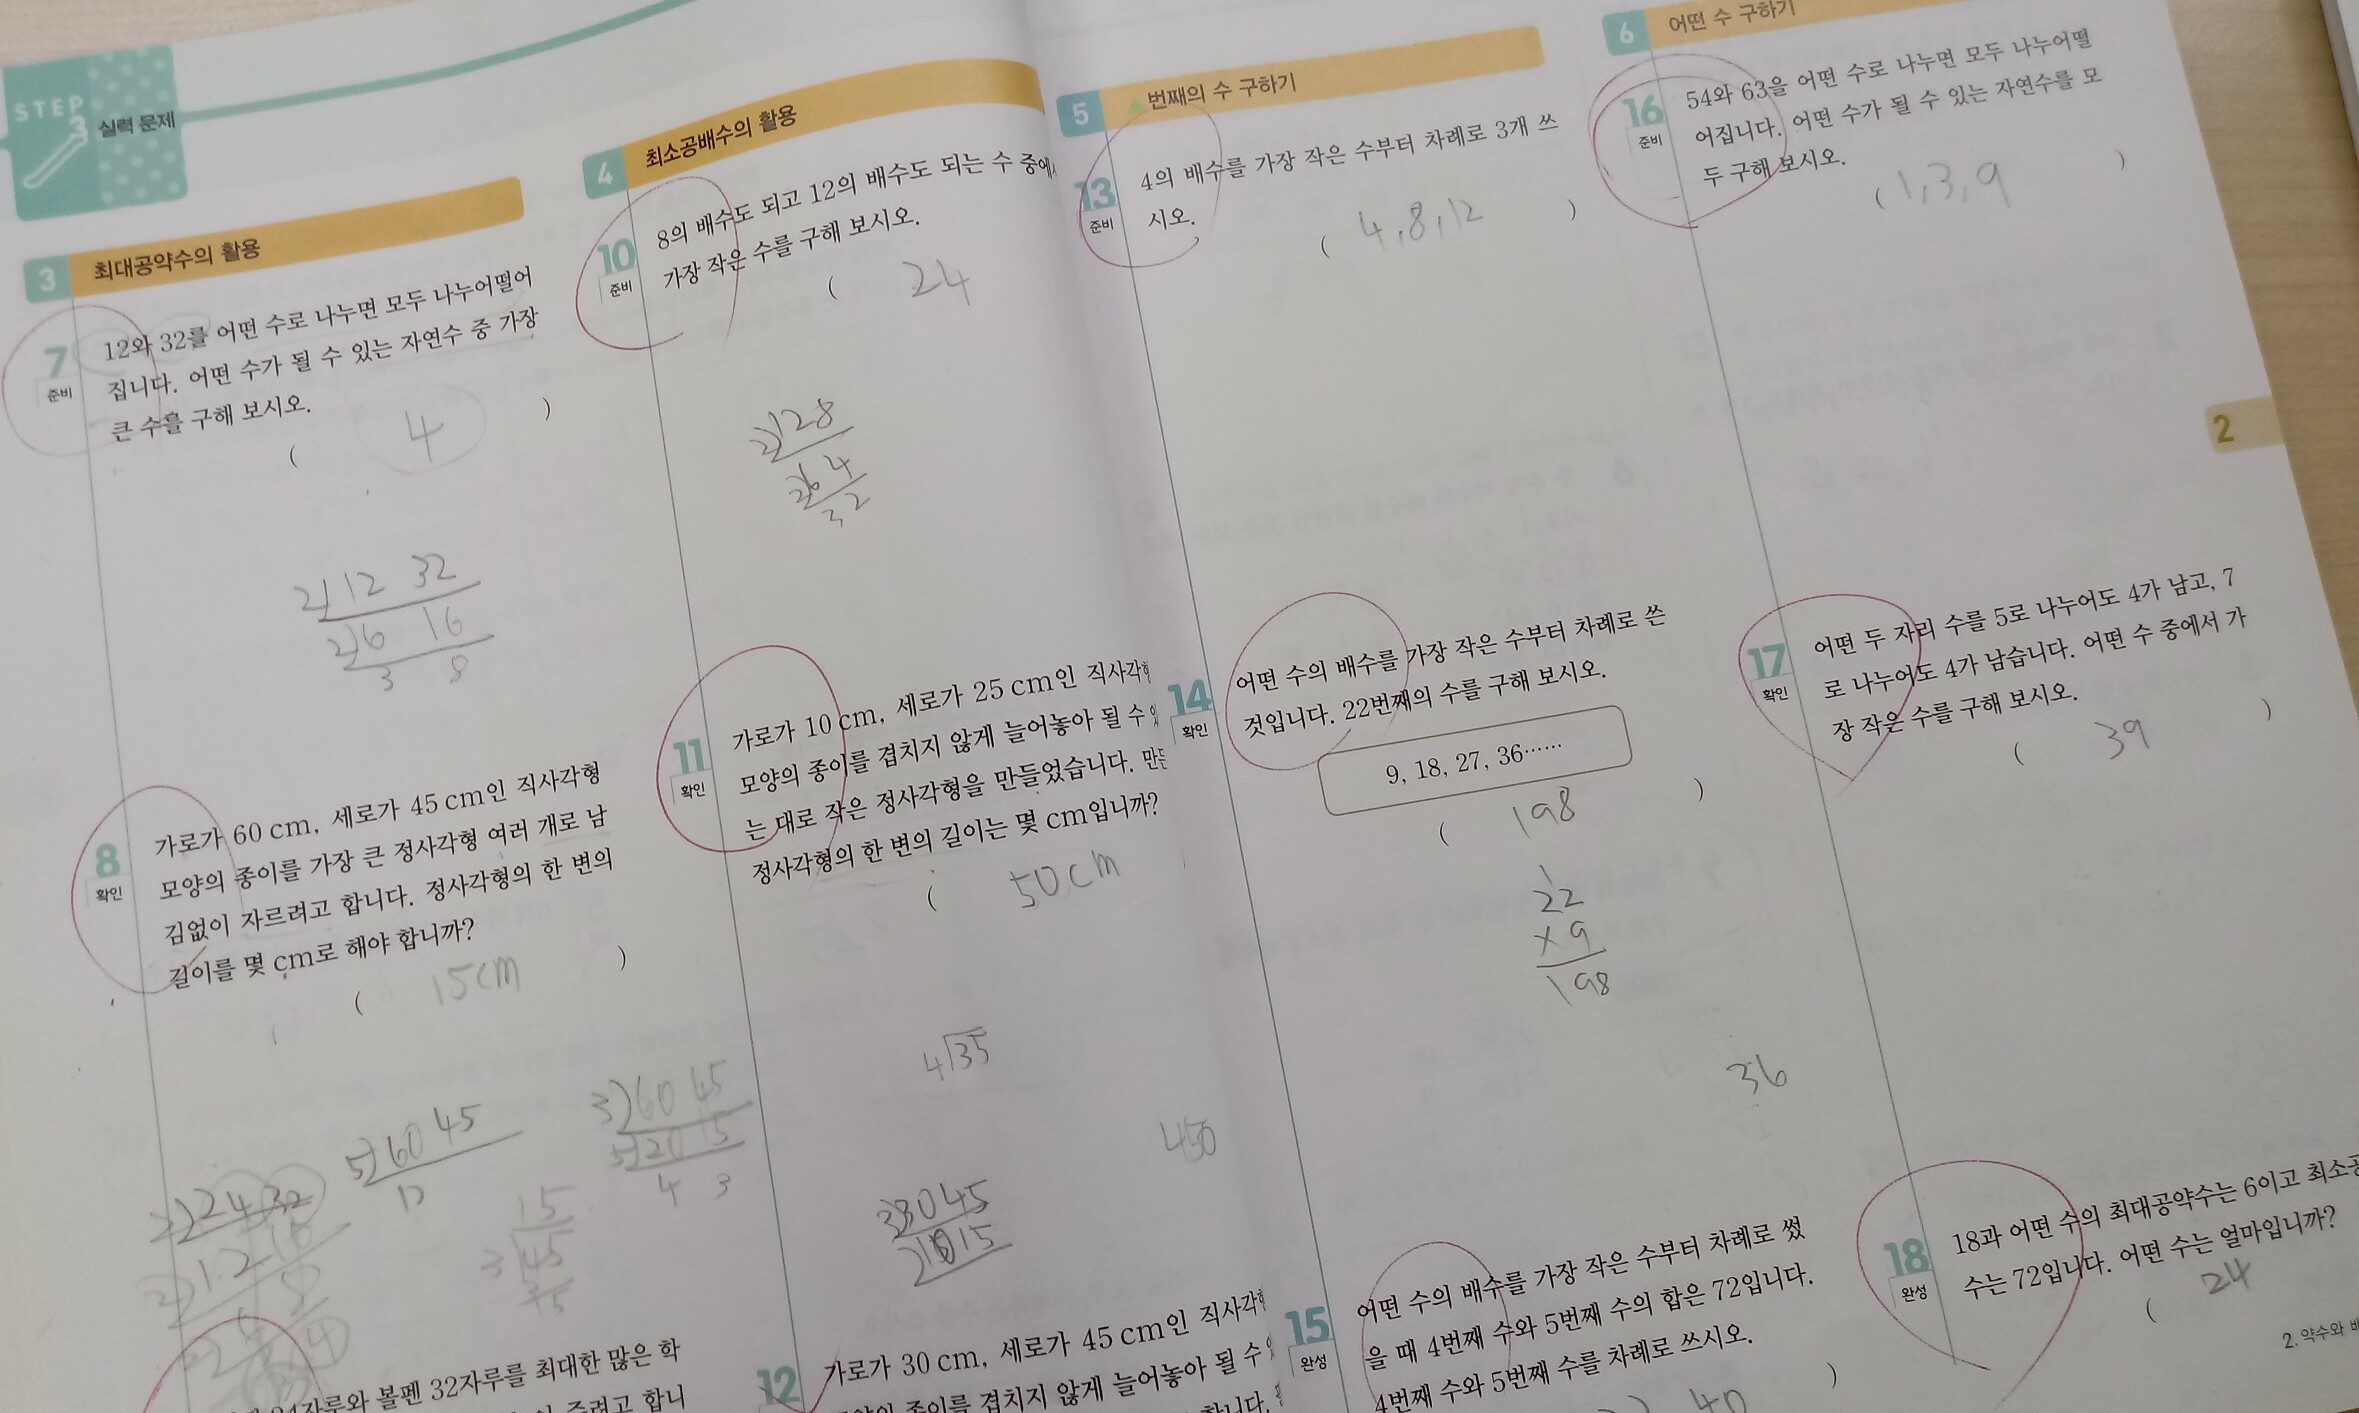 STEP
3 실력 문제
3 최대공약수의 활용
7
준비
12와 32를 어떤 수로 나누면 모두 나누어떨어
집니다. 어떤 수가 될 수 있는 자연수 중 가장
큰 수를 구해 보시오.
( 4 )
2) 12 32
2) 6 16
3 8
8
확인
가로가 60 cm, 세로가 45 cm인 직사각형
모양의 종이를 가장 큰 정사각형 여러 개로 남
김없이 자르려고 합니다. 정사각형의 한 변의
길이를 몇 cm로 해야 합니까?
( 15cm )
5) 60 45
12
3) 60 45
5) 20 15
4 3
15
3 45
2) 24 32
2) 12
32자루를 최대한 많은 학
주려고 합니
4 최소공배수의 활용
10
준비
8의 배수도 되고 12의 배수도 되는 수 중에서
가장 작은 수를 구해 보시오.
( 24
2) 12 8
2) 6 4
3 2
11
확인
가로가 10 cm, 세로가 25 cm인 직사각형
모양의 종이를 겹치지 않게 늘어놓아 될 수
는 대로 작은 정사각형을 만들었습니다. 만든
정사각형의 한 변의 길이는 몇 cm입니까?
( 50cm
4 35
450
3) 30 45
2) 10 15
12
가로가 30 cm, 세로가 45 cm인 직사각형
종이를 겹치지 않게 늘어놓아 될 수
5 번째의 수 구하기
13
준비
4의 배수를 가장 작은 수부터 차례로 3개 쓰
시오.
( 4, 8, 12 )
14
확인
어떤 수의 배수를 가장 작은 수부터 차례로 쓴
것입니다. 22번째의 수를 구해 보시오.
9, 18, 27, 36……
( 198 )
1
22
× 9
198
36
15
완성
어떤 수의 배수를 가장 작은 수부터 차례로 썼
을 때 4번째 수와 5번째 수의 합은 72입니다.
4번째 수와 5번째 수를 차례로 쓰시오.
40 )
6 어떤 수 구하기
16
준비
54와 63을 어떤 수로 나누면 모두 나누어떨
어집니다. 어떤 수가 될 수 있는 자연수를 모
두 구해 보시오.
( 1, 3, 9 )
2
17
확인
어떤 두 자리 수를 5로 나누어도 4가 남고, 7
로 나누어도 4가 남습니다. 어떤 수 중에서 가
장 작은 수를 구해 보시오.
( 39 )
18
완성
18과 어떤 수의 최대공약수는 6이고 최소공
수는 72입니다. 어떤 수는 얼마입니까?
( 24
2. 약수와